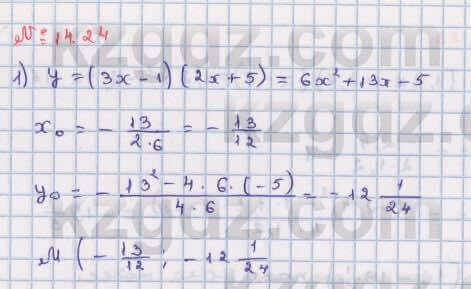 № 14.24
1) y = (3x − 1)(2x + 5) = 6x² + 13x − 5
x₀ = − 13/(2·6) = − 13/12
y₀ = − (13² − 4·6·(−5))/(4·6) = − 12 1/24
M (− 13/12; − 12 1/24
kzgdz.com